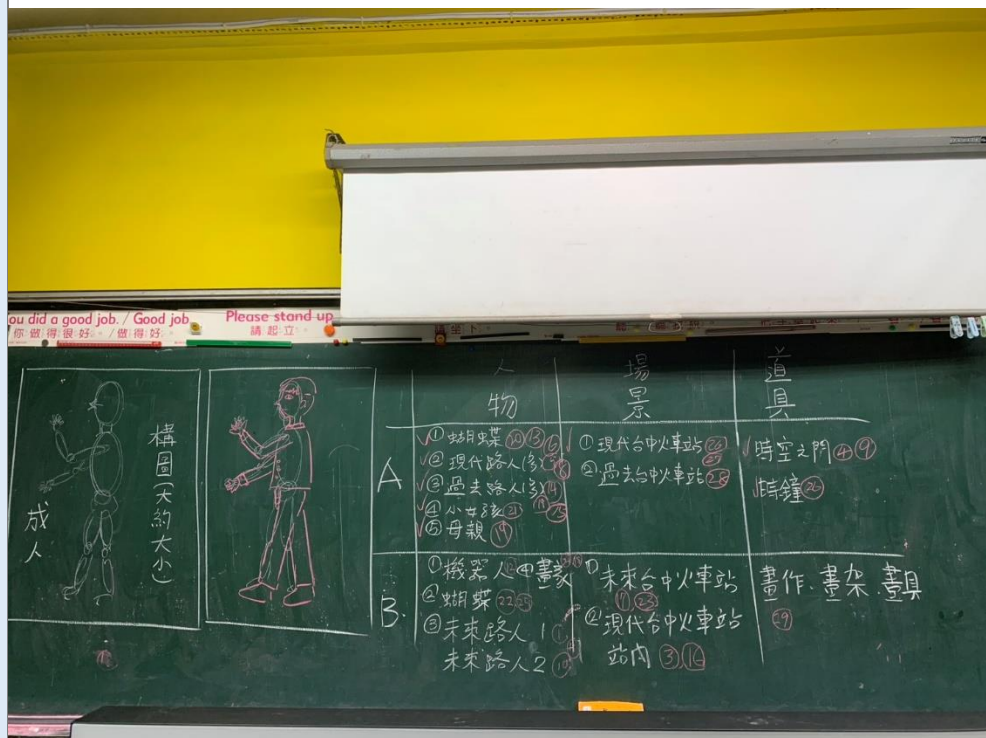 ou did a good job. / Good job
你做得很好。/做得好。
Please stand up
請起立。
構圖(大約大小)
成人
人物
場景
道具
A
①蝴蝶 ⑬
②現代路人(多)
③過去路人(多) ⑭
④小女孩
⑤母親
①現代台中火車站
②過去台中火車站 ㉘
時空之門 ④ ⑨
時鐘 ㉖
B.
①機器人
畫家
②蝴蝶 ㉒
③未來路人1
未來路人2
①未來台中火車站
㉓
②現代台中火車站
站內 ③ ⑯
畫作.畫架.畫具
㉙